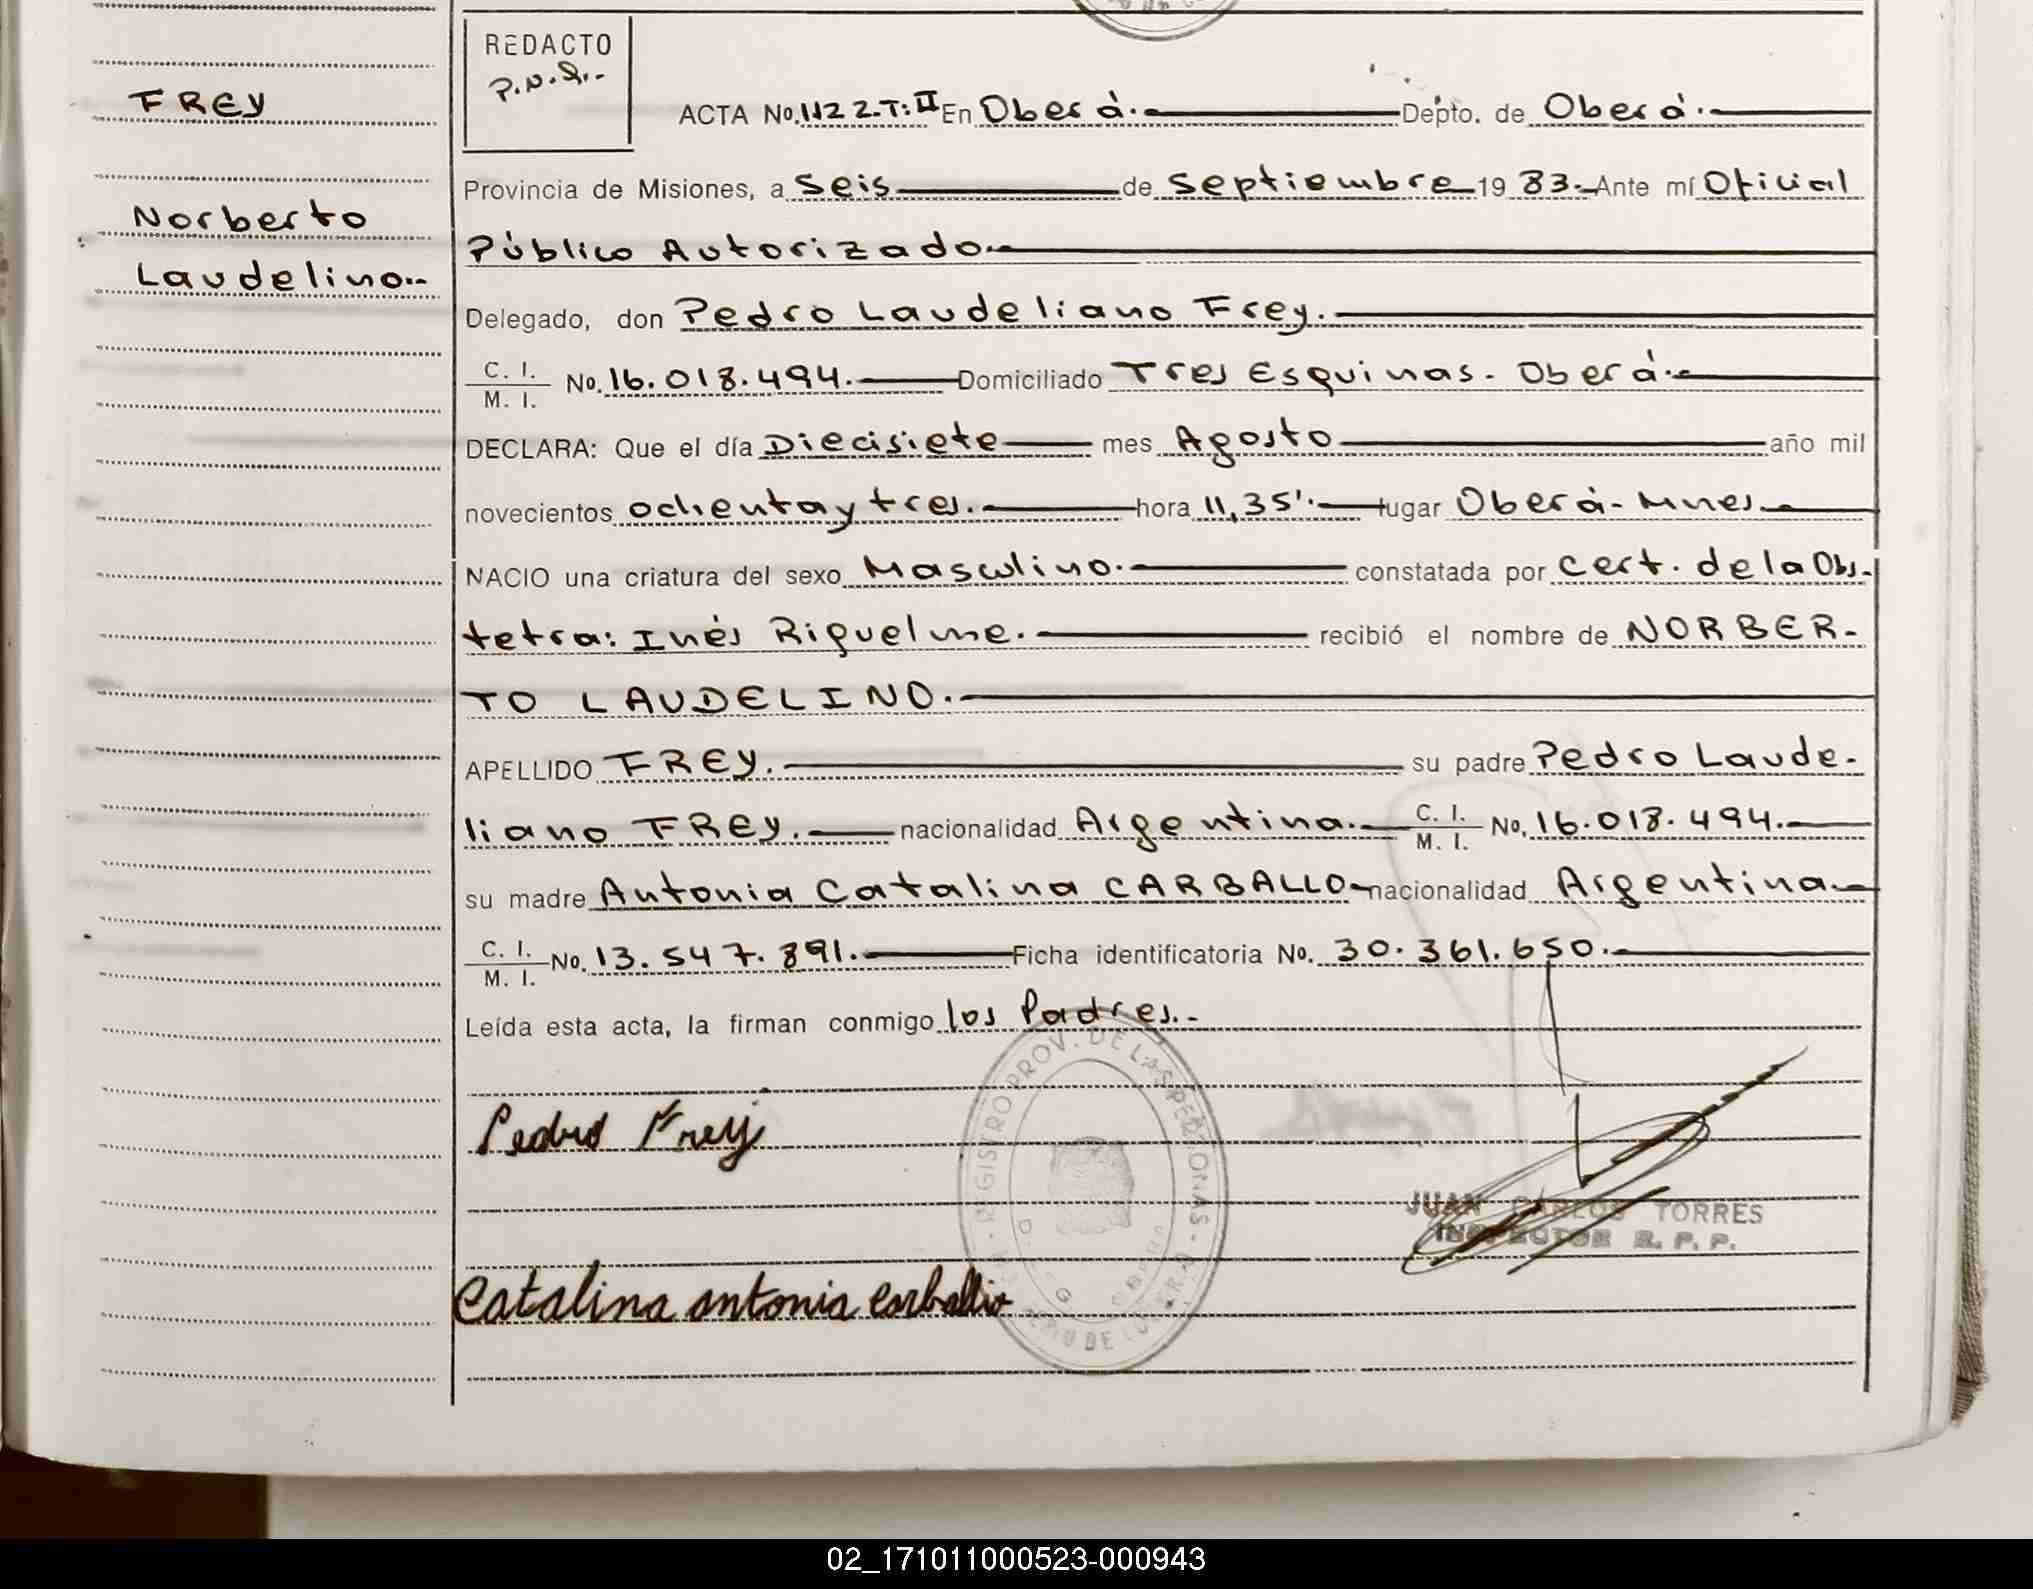 REDACTO
P.N.R.-
FREY
Norberto
Laudelino.-
ACTA No. 1122.T:II En Oberá.- Depto. de Oberá.-
Provincia de Misiones, a Seis de Septiembre 19 83.- Ante mí Oficial
Público Autorizado.-
Delegado, don Pedro Laudeliano Frey.-
C. I.
M. I. No. 16.018.494.- Domiciliado Tres Esquinas- Oberá.-
DECLARA: Que el día Diecisiete mes Agosto año mil
novecientos ochenta y tres.- hora 11,35'.- lugar Oberá- Mnes.-
NACIO una criatura del sexo Masculino.- constatada por Cert. de la Obs-
tetra: Inés Riquelme.- recibió el nombre de NORBER-
TO LAUDELINO.-
APELLIDO FREY.- su padre Pedro Laude-
liano FREY.- nacionalidad Argentina.- C. I.
M. I. No. 16.018.494.-
su madre Antonia Catalina CARBALLO- nacionalidad Argentina.-
C. I.
M. I. No. 13.547.891.- Ficha identificatoria No. 30.361.650.-
Leída esta acta, la firman conmigo los Padres.-
REGISTRO PROV. DE LAS PERSONAS
Pedro Frey
JUAN CARLOS TORRES
INSPECTOR R. P. P.
Catalina antonia Carballo
02_171011000523-000943